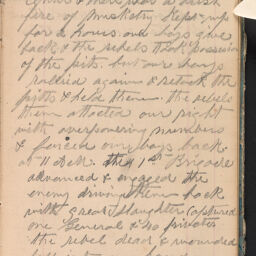 fire of musketry kept up
for 2 hours. our boys give
back & the rebels took possession
of the pits. but our boys
rallied again & retook the
pitts & held them. the rebels
then attacted our right
with overpowering numbers
& forced our boys back
at 11 Oclk. the 1st Brigade
advanced & engaged the
enemy driving them back
with great slaughter captured
one General & 40 privates
the rebel dead & wounded